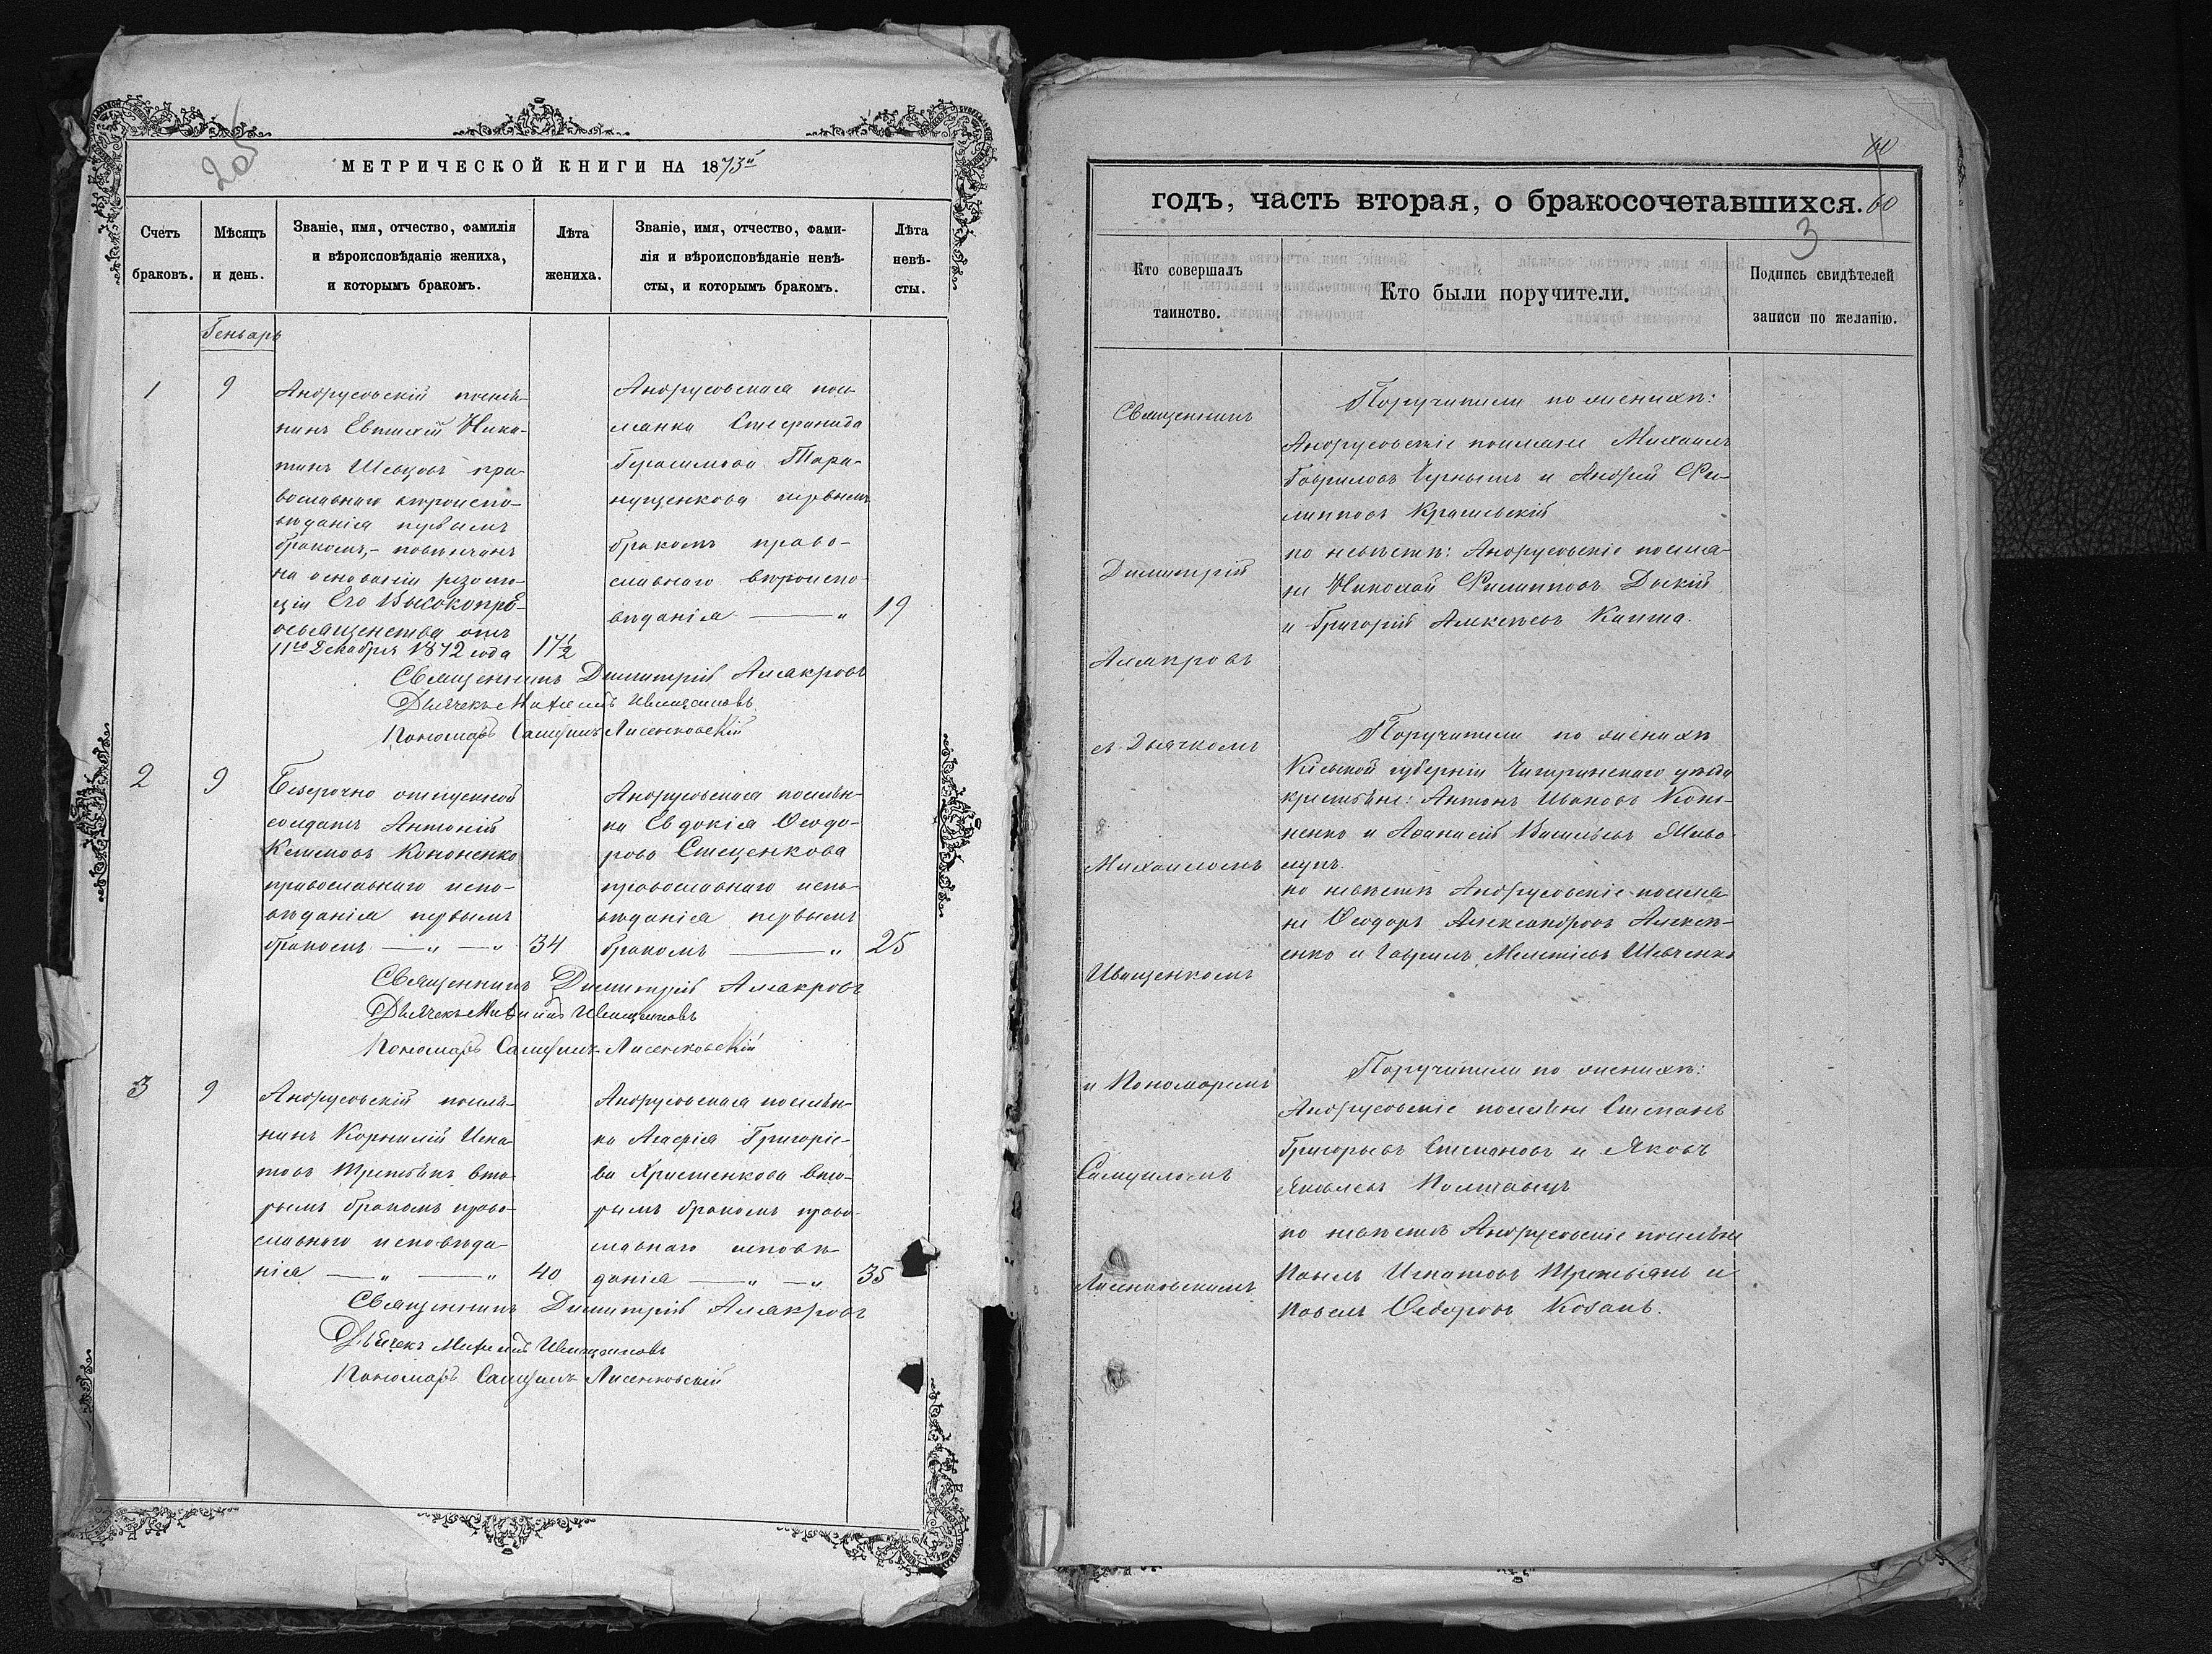 МЕТРИЧЕСКОЙ КНИГИ НА 1873й
Счетъ браковъ.
Мѣсяцъ и день.
Званіе, имя, отчество, фамилія
и вѣроисповѣданіе жениха,
и которымъ бракомъ.
Лѣта жениха.
Званіе, имя, отчество, фами-
лія и вѣроисповѣданіе невѣ-
сты, и которымъ бракомъ.
Лѣта невѣ-
сты.
Генварь
1
9
Андрусовскій поселя-
нинъ Евтихій Ники-
тинъ Шевцовъ пра-
вославнаго вѣроиспо-
вѣданія первымъ
бракомъ,- повѣнчанъ
на основаніи резолю-
ціи Его Высокопре-
освященства отъ
11го Декабря 1872 года
17½
Андрусовская посе-
лянка Стефанида
Герасимова
первымъ
бракомъ право-
славнаго вѣроиспо-
вѣданія — „
19
Священникъ Димитрій
Дьячекъ Михаилъ
Пономарь Самуилъ Лисенковскій
2
9
Безсрочно отпускной
солдатъ Антоній
Климовъ Кононенко
православнаго испо-
вѣданія первымъ
бракомъ — „ — „
34
Андрусовская поселян-
ка Евдокія Ѳеодо-
рова Стеценкова
православнаго испо-
вѣданія первымъ
бракомъ — „
25
Священникъ Димитрій
Дьячекъ Михаилъ
Пономарь Самуилъ Лисенковскій
3
9
Андрусовскій поселя-
нинъ Корнилій Игна-
товъ Третьякъ вто-
рымъ бракомъ право-
славнаго исповѣда-
нія — „ — „
40
Андрусовская поселян-
ка Агафія Григоріе-
ва Христенкова вто-
рымъ бракомъ право-
славнаго исповѣ-
данія — „ — „
35
Священникъ Димитрій
Дьячекъ Михаилъ
Пономарь Самуилъ Лисенковскій
60
годъ, часть вторая, о бракосочетавшихся. 60
3
Кто совершалъ
таинство.
Кто были поручители.
Подпись свидѣтелей
записи по желанію.
Священникъ
Димитрій
съ Дьячкомъ
Михаиломъ
Иващенкомъ
и Пономаремъ
Самуиломъ
Лисенковскимъ
Поручители по женихѣ:
Андрусовскіе поселяне Михаилъ
Гавриловъ Чернышъ и Андрей Фи-
липповъ
по невѣстѣ: Андрусовскіе поселя-
не Николай Филипповъ Дикій
и Григорій Алексѣевъ
Поручители по женихѣ
Кіевской губерніи Чигиринскаго уѣзда
крестьяне: Антонъ Ивановъ Коно-
ненко и Аѳанасій Васильевъ
по невѣстѣ Андрусовскіе поселя-
не Ѳеодоръ Александровъ Алексѣ-
енко и Гаврилъ Мелетіевъ Шевченко
Поручители по женихѣ:
Андрусовскіе поселяне Степанъ
Григорьевъ Степановъ и Яковъ
Яковлевъ Полтавецъ
по невѣстѣ Андрусовскіе поселяне
Павелъ Игнатовъ Третьякъ и
Павелъ Ѳедоровъ Козакъ.